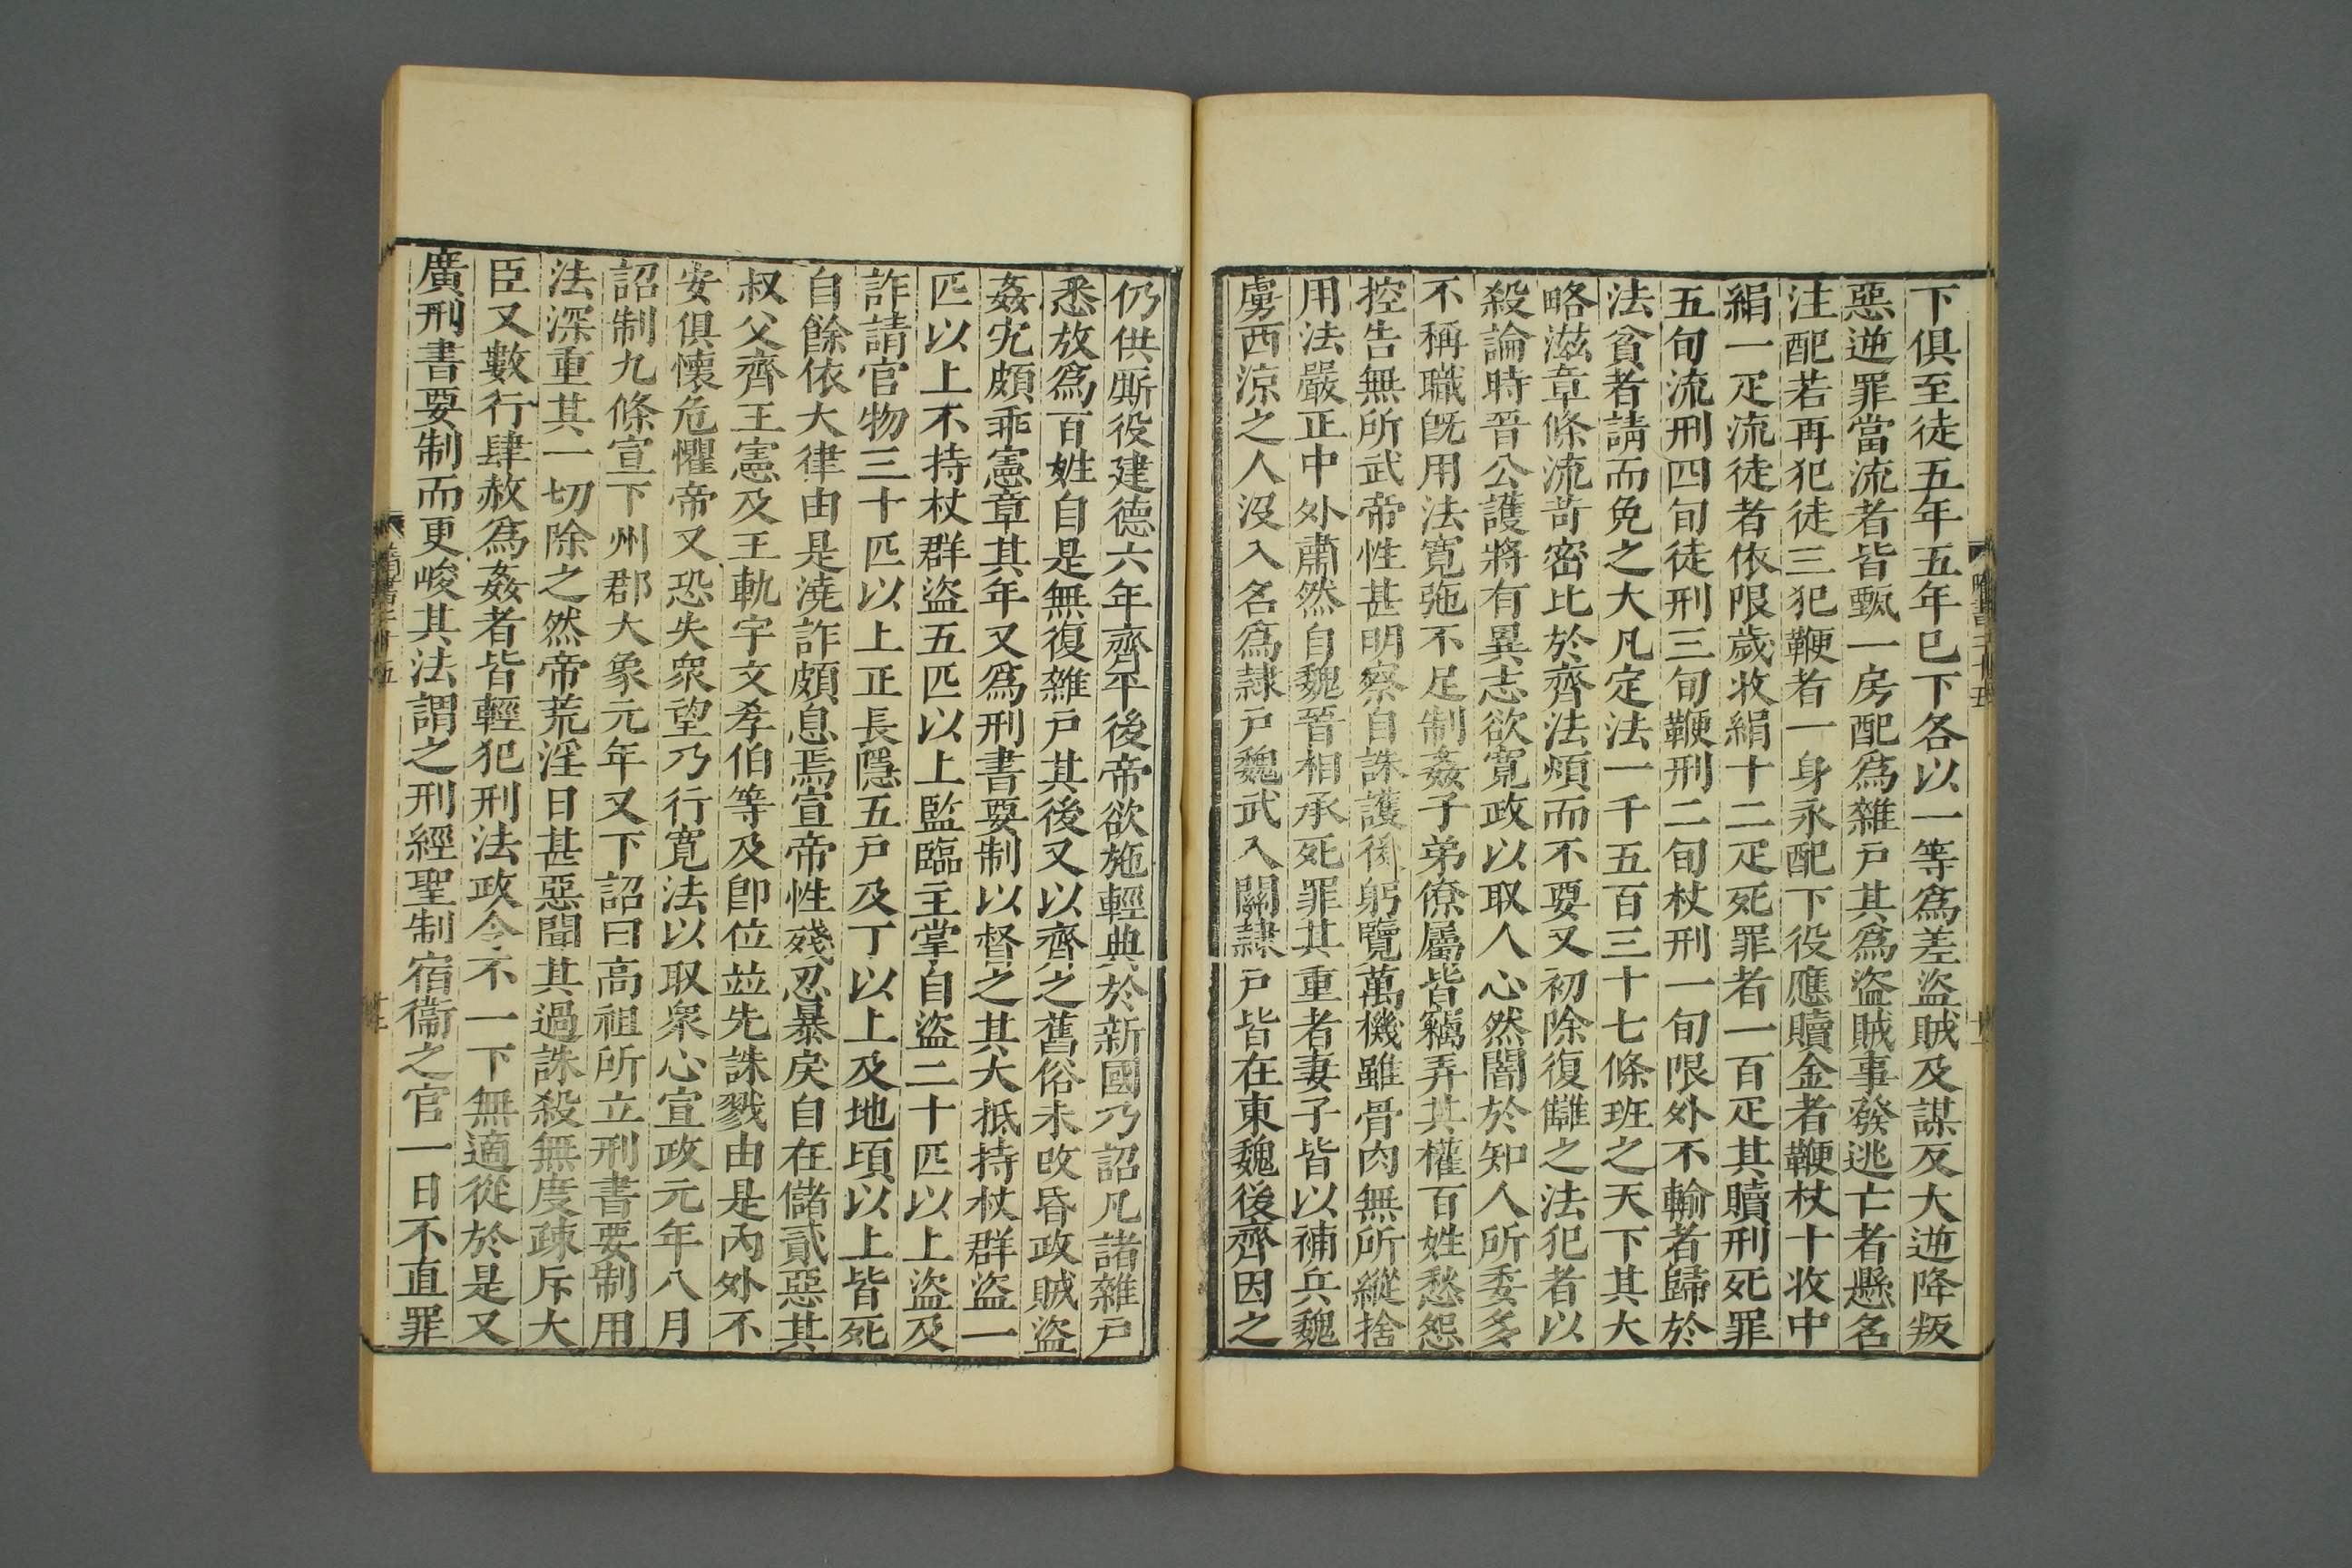 下俱至徒五年五年已下各以一等爲差盜賊及謀反大逆降叛
惡逆罪當流者皆甄一房配爲雜戸其爲盜賊事發逃亡者懸名
注配若再犯徒三犯鞭者一身永配下役應贖金者鞭杖十收中
絹一疋流徒者依限歲收絹十二疋死罪者一百疋其贖刑死罪
五旬流刑四旬徒刑三旬鞭刑二旬杖刑一旬限外不輸者歸於
法貧者請而免之大凡定法一千五百三十七條班之天下其大
略滋章條流苛密比於齊法煩而不要又初除復讎之法犯者以
殺論時晉公護將有異志欲寛政以取人心然闇於知人所委多
不稱職旣用法寛弛不足制姦子弟僚屬皆竊弄其權百姓愁怨
控告無所武帝性甚明察自誅護後躬覽萬機雖骨肉無所縱捨
用法嚴正中外肅然自魏晉相承死罪其重者妻子皆以補兵魏
虜西涼之人沒入名爲隷戸魏武入關隷戸皆在東魏後齊因之
仍供厮役建德六年齊平後帝欲施輕典於新國乃詔凡諸雜戸
悉放爲百姓自是無復雜戸其後又以齊之舊俗未改昏政賊盜
姦宄頗乖憲章其年又爲刑書要制以督之其大抵持杖群盜一
匹以上不持杖群盜五匹以上監臨主掌自盜二十匹以上盜及
詐請官物三十匹以上正長隱五戸及丁以上及地頃以上皆死
自餘依大律由是澆詐頗息焉宣帝性殘忍暴戾自在儲貳惡其
叔父齊王憲及王軌宇文孝伯等及卽位並先誅戮由是內外不
安俱懷危懼帝又恐失衆望乃行寛法以取衆心宣政元年八月
詔制九條宣下州郡大象元年又下詔曰高祖所立刑書要制用
法深重其一切除之然帝荒淫日甚惡聞其過誅殺無度疎斥大
臣又數行肆赦爲姦者皆輕犯刑法政令不一下無適從於是又
廣刑書要制而更峻其法謂之刑經聖制宿衞之官一日不直罪